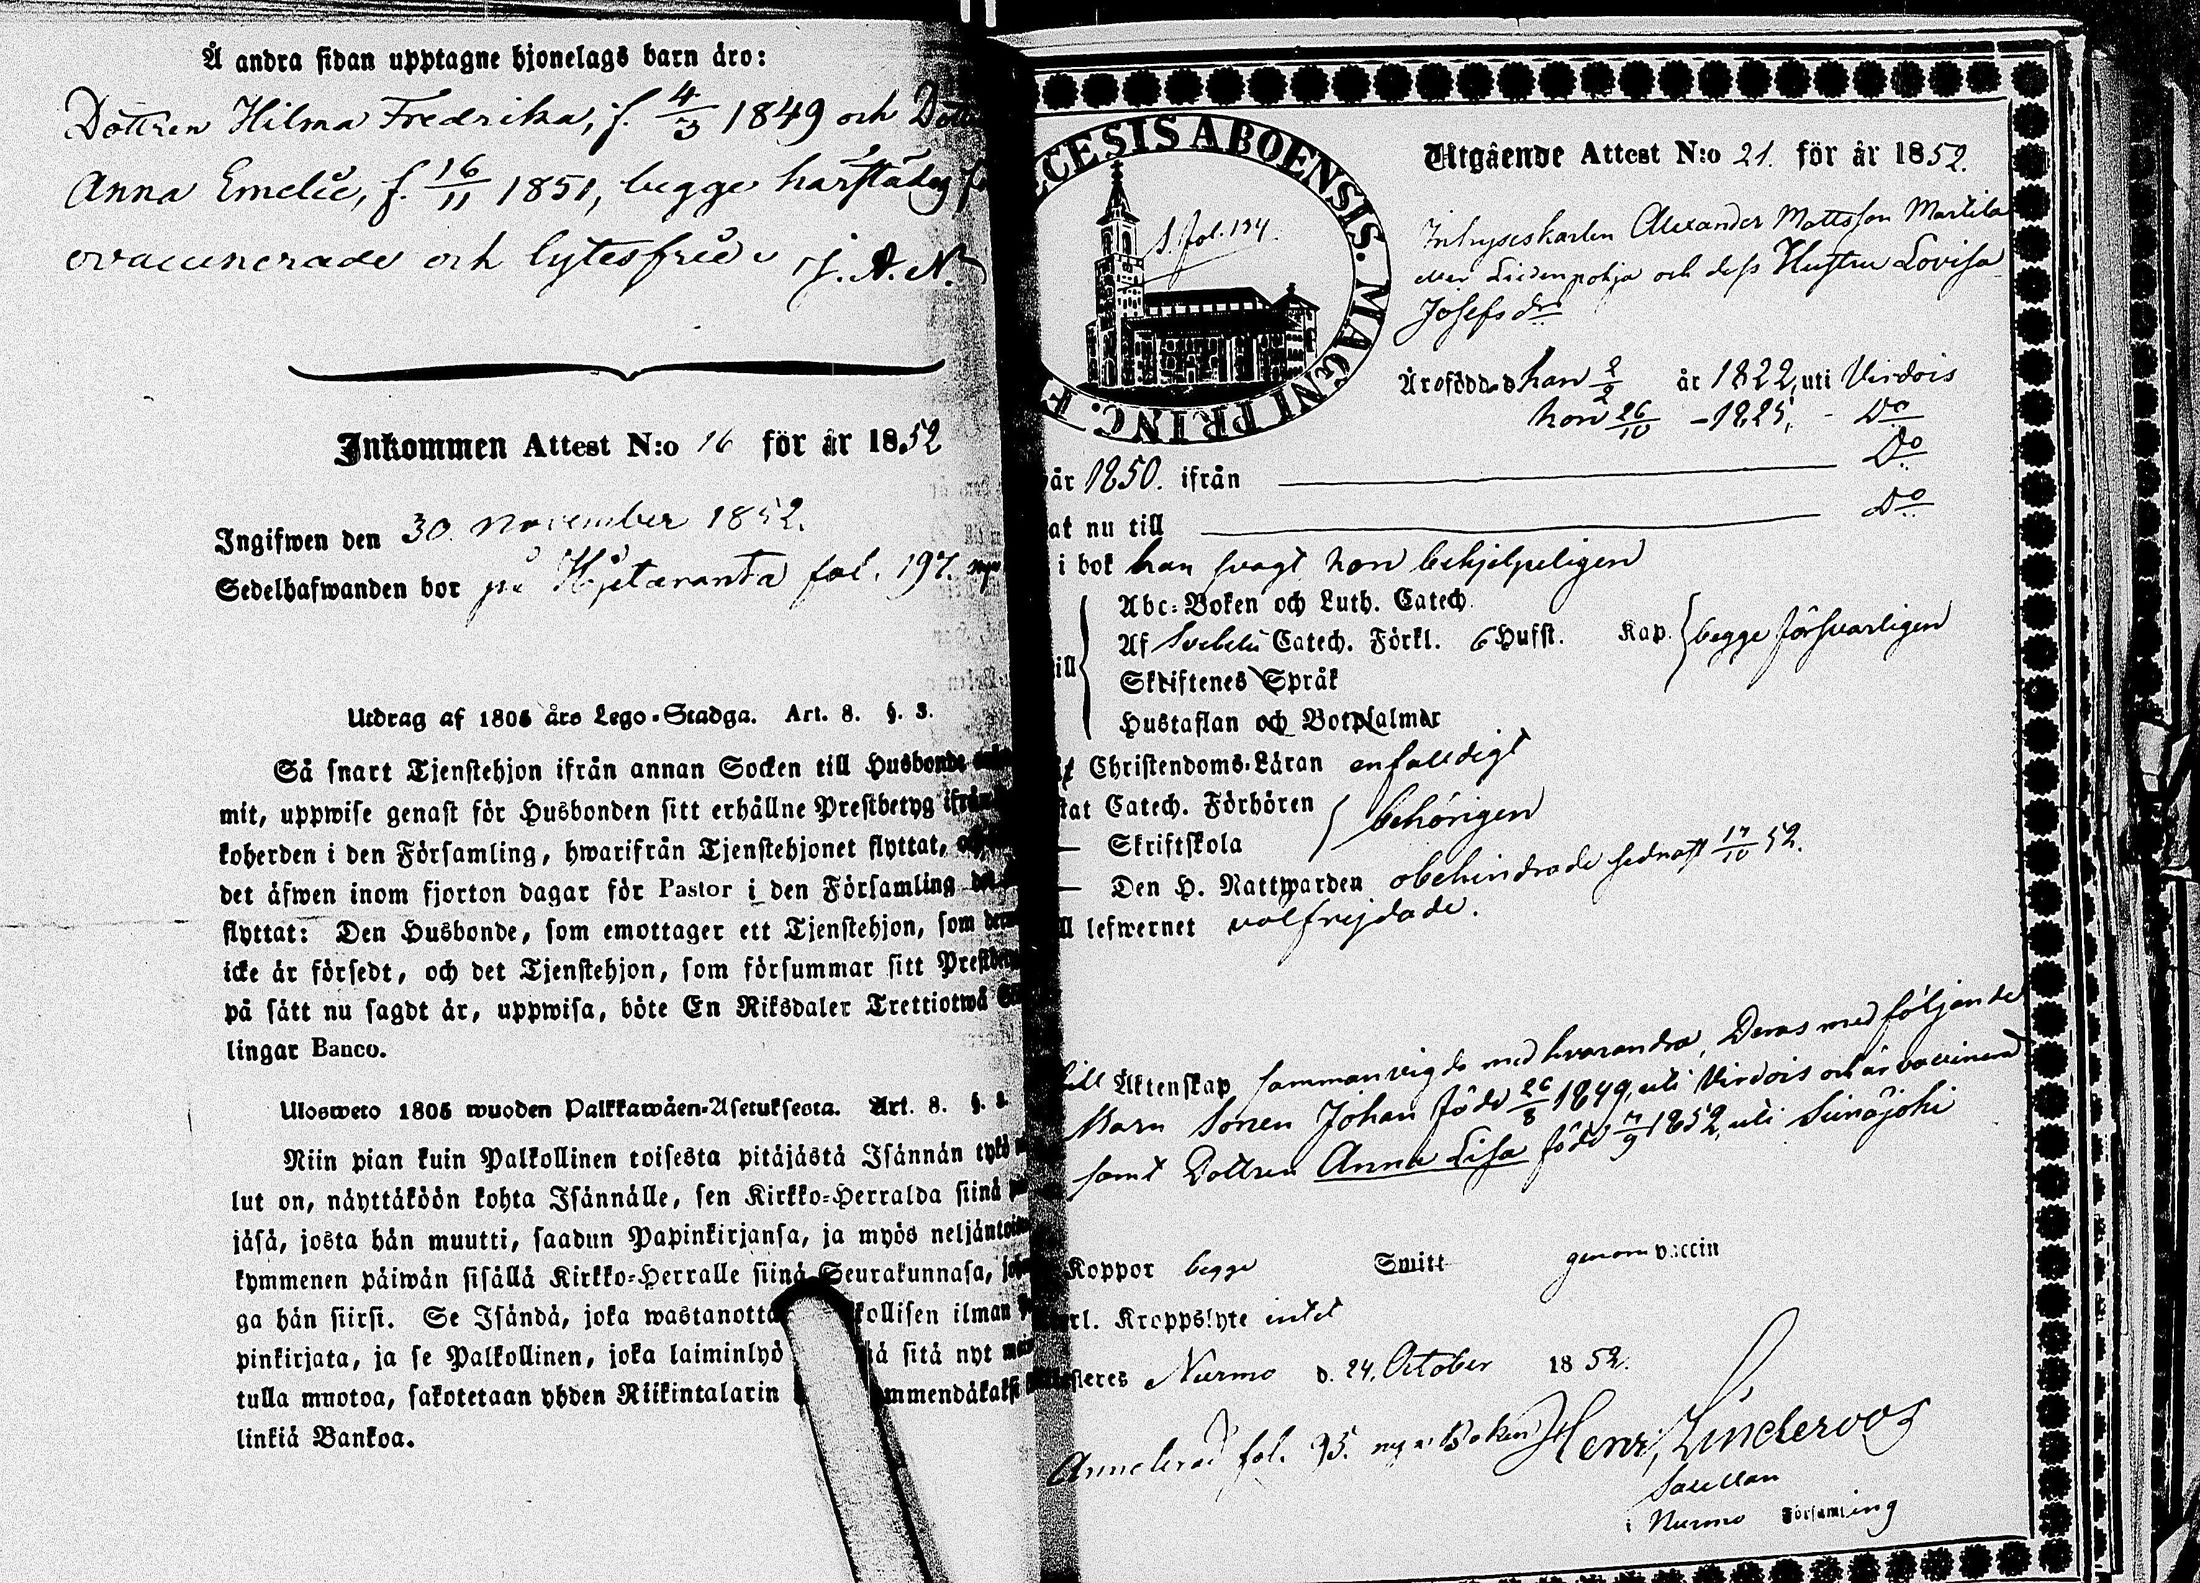 Å andra sidan upptagne hjonelags barn äro:
Dottren Hilma Fredrika, f. 4/3 1849 och
Anna Emelie, f. 16/11 1851, begge härstädes
ovaccinerade och lytesfrie J. A. N.
Inkommen Attest N:o 16 för år 1852
Ingifwen den 30. November 1852.
Sedelhafwanden bor på fol. 197.
Utdrag af 1805 års Lego-Stadga. Art. 8. §. 3.
Så snart Tjenstehjon ifrån annan Socken till Husbonde
mit, uppwise genast för Husbonden sitt erhållne Prestbetyg ifrån
koherden i den Församling, hwarifrån Tjenstehjonet flyttat,
det äfwen inom fjorton dagar för Pastor i den Församling
flyttat: Den Husbonde, som emottager ett Tjenstehjon, som
icke är försedt, och det Tjenstehjon, som försummar sitt
på sätt nu sagdt är, uppwisa, böte En Riksdaler Trettiotwå
lingar Banco.
Ulosweto 1805 wuoden Palkkawäen-Asetuksesta. Art. 8. §. 3.
Niin pian kuin Palkollinen toisesta pitäjästä Isännän tykö
lut on, näyttäköön kohta Isännälle, sen Kirkko-Herralda siinä
jäsä, josta hän muutti, saadun Papinkirjansa, ja myös
kymmenen päiwän sisällä Kirkko-Herralle siinä Seurakunnasa,
ga hän siirsi. Se Isändä, joka kollisen ilman
pinkirjata, ja se Palkollinen, joka laiminlyö sitä nyt
tulla muotoa, sakotetaan yhden Riikintalarin mmendäkaksi
linkiä Bankoa.
CESIS ABOENSIS. MAGNI PRINC. F
S. fol. 194.
Utgående Attest N:o 21. för år 1852.
Inhyseskarlen Alexander Mattsson Markila
Liedenpohja och dess Hustru Lovisa
Josefsdr
Äro födde han 2/2 år 1822, uti Virdois
hon 26/10 - 1825, - Do
år 1850. ifrån Do
at nu till Do
i bok han svagt hon behjelpeligen
Abc-Boken och Luth. Catech.
Af Svebelii Catech. Förkl. 6 Hufst. Kap. begge försvarligen
Skriftenes Språk
Hustaflan och Botpsalmar
Christendoms-Läran enfaldigt
Catech. Förhören
Skriftskola behörigen
Den H. Nattwarden obehindrade sednast 17/10 52.
lefwernet välfrejdade.
till Äktenskap sammanvigde med hvarandra. Deras med följande
Barn Sonen Johan född 26/8 1849, uti Virdois och är vaccinerad
samt Dottren Anna Lisa född 7/9 1852, uti Seinäjoki
Koppor begge Smitt genom vaccin
Kroppslyte intet
Nurmo d. 24. October 1852.
Annoterad fol. 95. nya Boken Henr. Lindervos
Sacellan
i Nurmo Församling